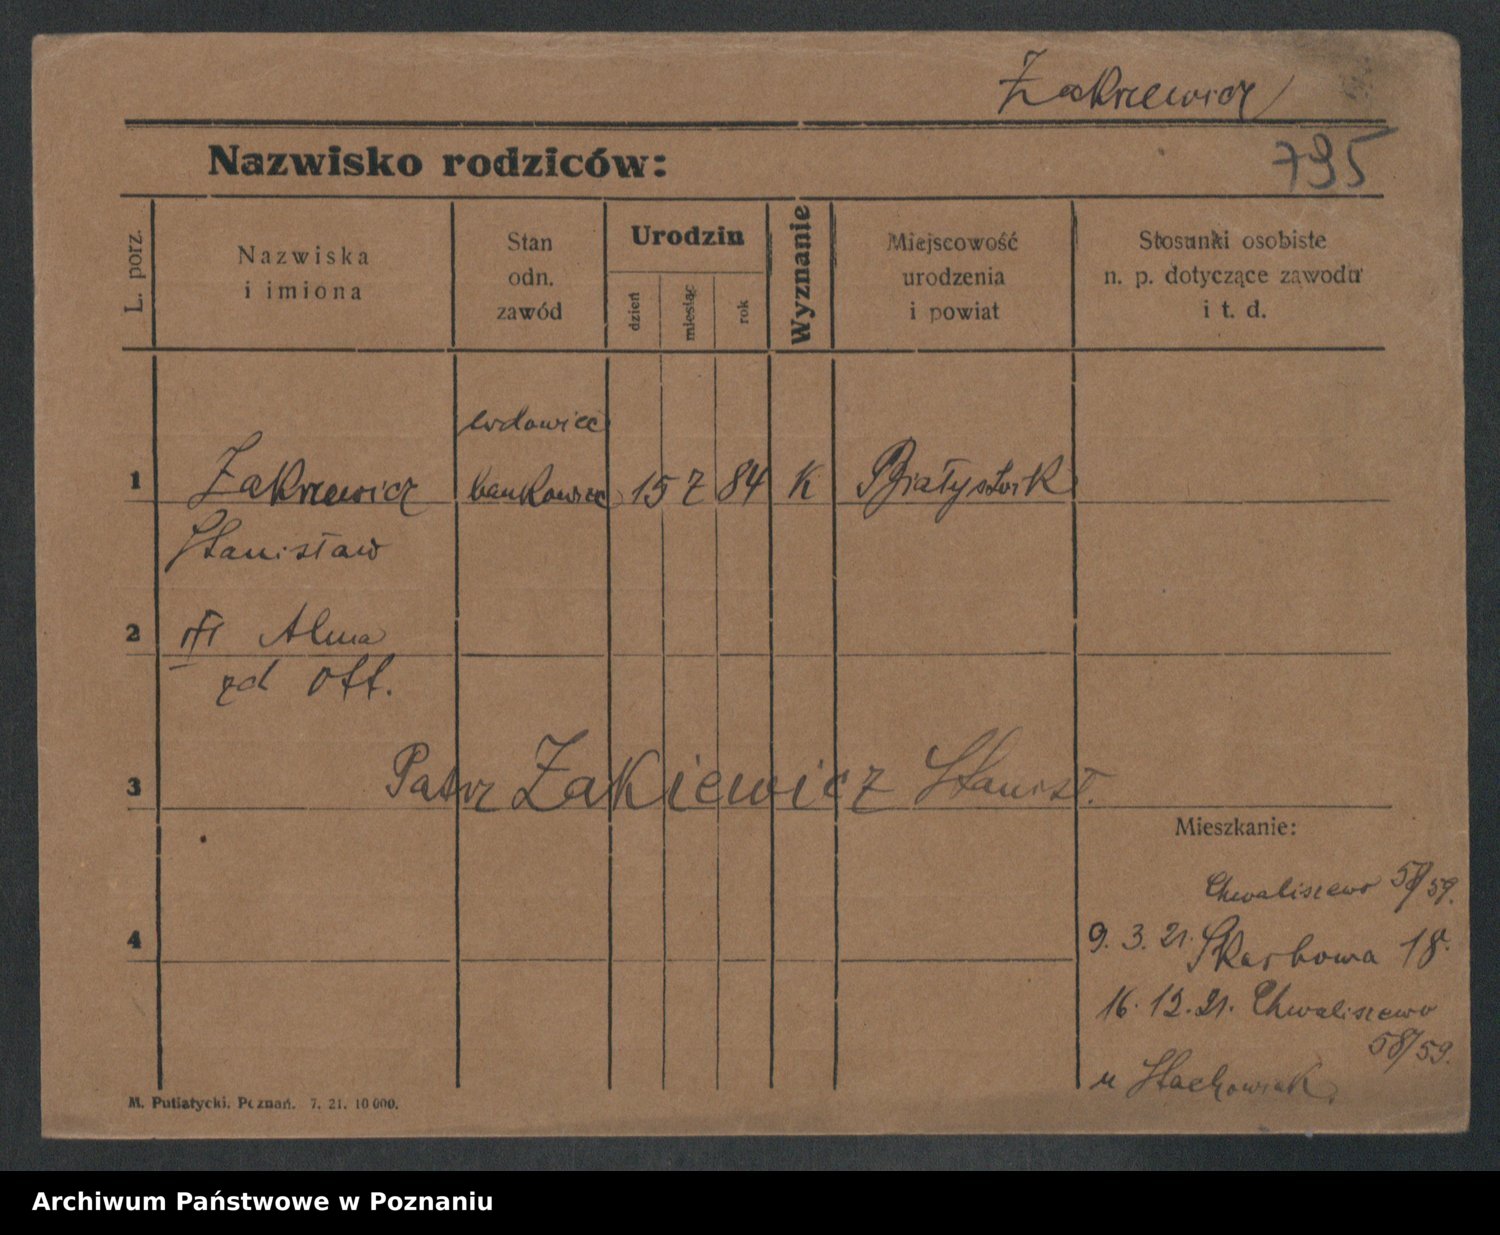 Zakrzewicz
795
Nazwisko rodziców:
L. porz.
Nazwiska
i imiona
Stan
odn.
zawód
Urodzin
dzień
miesiąc
rok
Wyznanie
Miejscowość
urodzenia
i powiat
Stosunki osobiste
n. p. dotyczące zawodu
i t. d.
wdowiec
1 Zakrzewicz bankowiec 15 7 84 K Białystok
Stanisław
2 Alma
zd Ott.
3 Patrz Zakiewicz Stanisł.
Mieszkanie:
Chwaliszewo 58/59.
4
9. 3. 21. Skarbowa 18.
16. 12. 21. Chwaliszewo
58/59.
u Stachowiak
M. Putiatycki, Poznań. 7. 21. 10 000.
Archiwum Państwowe w Poznaniu